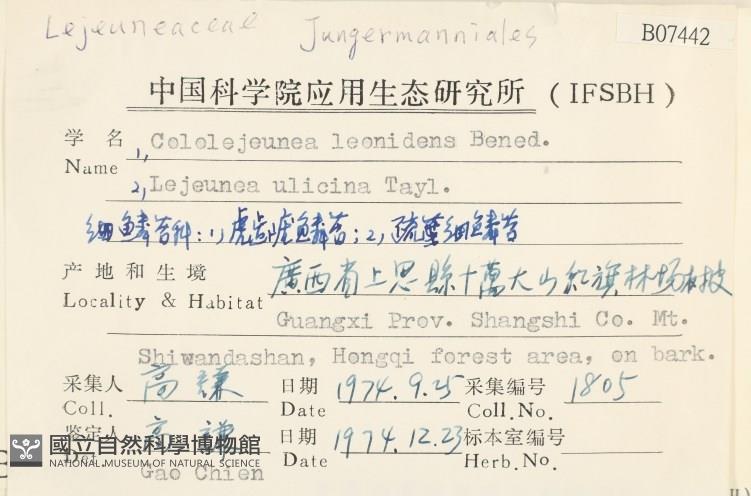 Lejeuneaceae Jungermanniales B07442
中国科学院应用生态研究所 (IFSBH)
学名 1, Cololejeunea leonidens Bened.
Name 2, Lejeunea ulicina Tayl.
细鳞苔科:1,虎齿疣鳞苔;2,疏葉细鳞苔
产地和生境 廣西省上思縣十萬大山紅旗林場樹披
Locality & Habitat Guangxi Prov. Shangshi Co. Mt.
Shiwandashan, Hongqi forest area, on bark.
采集人 高謙 日期 1974.9.25 采集编号 1805
Coll. Date Coll.No.
鉴定人 高謙 日期 1974.12.23 标本室编号
Det. Gao Chien Date Herb.No.
國立自然科學博物館
NATIONAL MUSEUM OF NATURAL SCIENCE